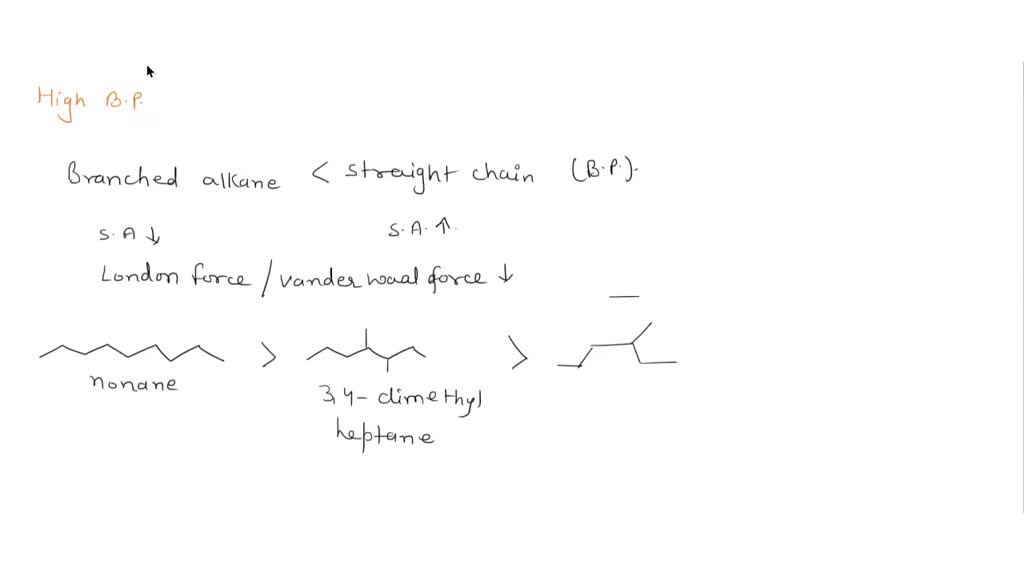 High B.P.
Branched alkane < straight chain (B.P.).
S.A ↓ S.A. ↑.
London force / vander waal force ↓
> >
nonane
3,4 - dimethyl
heptane